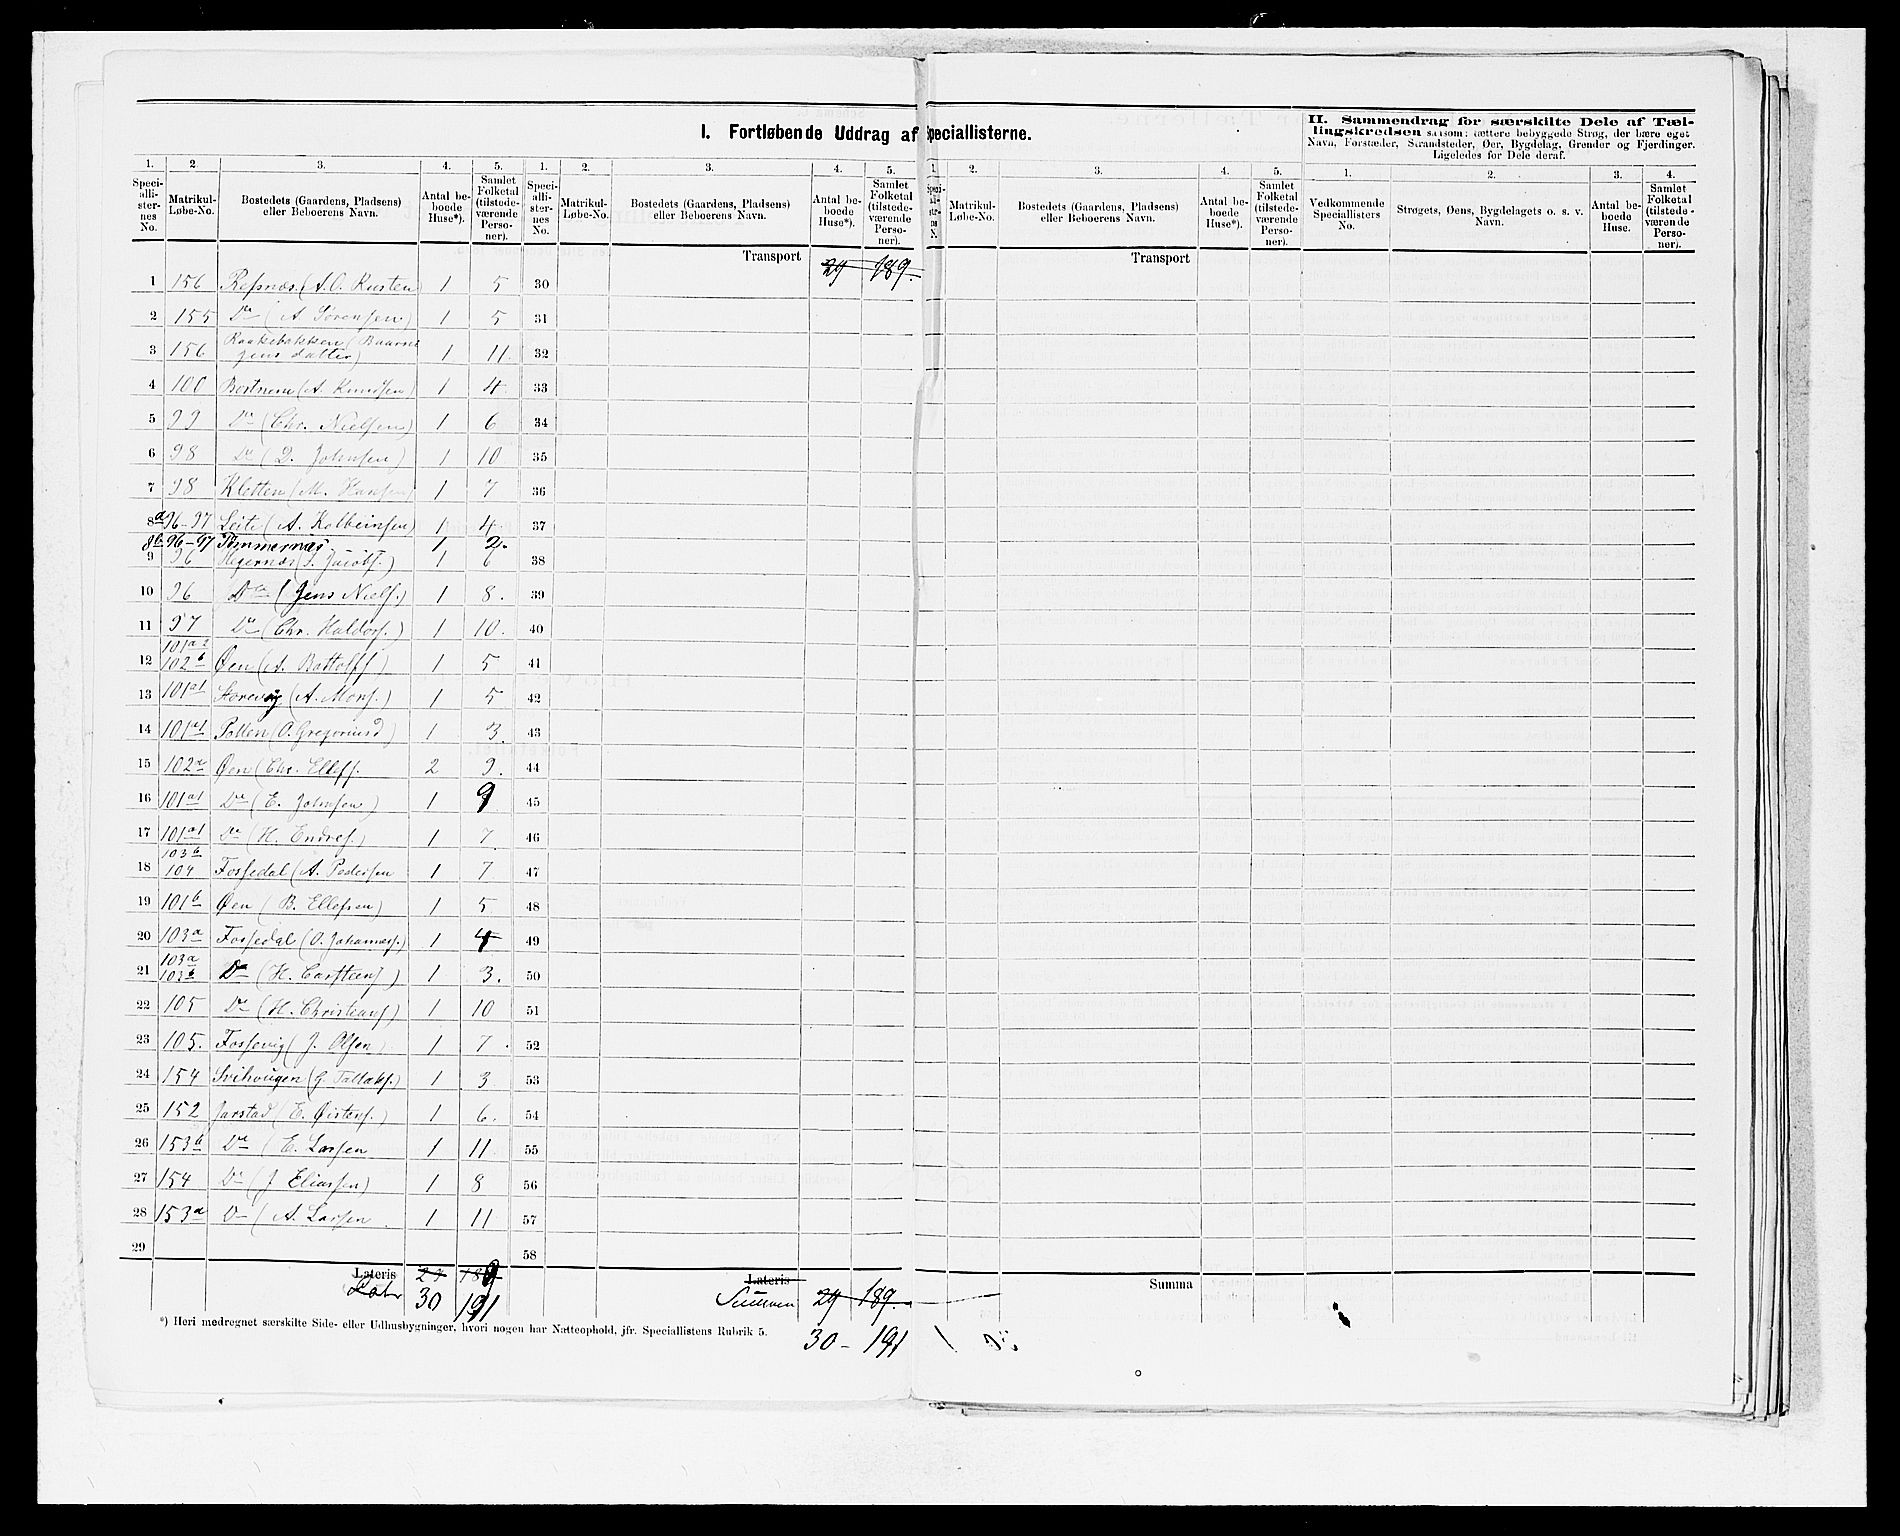 I. Fortløbende Uddrag af Speciallisterne.
II. Sammendrag for særskilte Dele af Tællingskredsen saasom: tættere bebyggede Strøg, der bære eget
Navn, Forstæder, Strandsteder, Øer, Bygdelag, Grender og Fjerdinger.
Ligeledes for Dele deraf.
1. 2. 3. 4. 5. 1. 2. 3. 4. 5. 1. 2. 3. 4. 5. 1. 2. 3. 4.
Speciallisternes No. Matrikul-Løbe-No. Bostedets (Gaardens, Pladsens) eller Beboerens Navn. Antal beboede Huse*). Samlet Folketal (tilstedeværende Personer).
Speciallisternes No. Matrikul-Løbe-No. Bostedets (Gaardens, Pladsens) eller Beboerens Navn. Antal beboede Huse*). Samlet Folketal (tilstedeværende Personer).
Matrikul-Løbe-No. Bostedets (Gaardens, Pladsens) eller Beboerens Navn. Antal beboede Huse*). Samlet Folketal (tilstedeværende Personer).
Vedkommende Speciallisters No. Strøgets, Øens, Bygdelagets o. s. v. Navn. Antal beboede Huse. Samlet Folketal (tilstedeværende Personer).
Transport 29 189. Transport
1 156 Refsnæs (A. O. Rusten) 1 5 30
2 155 Do (A Sørensen) 1 5 31
3 156 datter) 1 11. 32
4 100 (A. Knudsen) 1 4. 33
5 99 Do (Chr. Nielsen) 1 6 34
6 98 Do (D. Johnsen) 1 10 35
7 98 Kletten (M. Hansen) 1 7 36
8a 96-97 Leite (A. Kolbeinsen) 1 4. 37
8b 96-97 1 2.
9 96 Jacobs.) 1 6 38
10 96 Do (Jens Niels.) 1 8. 39
11 97 Do (Chr. Haldors.) 1 10. 40
101a2
12 102b Øen (A. Bottolfs) 1 5 41
13 101a1 Storevig (A. Mons.) 1 5 42
14 101a1 Pollen (O. Gregoriusd) 1 3. 43
15 102a Øen (Chr. Ellefs. 2 9. 44
16 101a1 Do (E. Johnsen) 1 9 45
17 101a1 Do (H. Endres.) 1 7. 46
103b
18 104 Fossedal (A. Pedersen 1 7 47
19 101b Øen (B. Ellefsen) 1 5 48
20 103a Fossedal (O. Johannes.) 1 4 49
103a
21 103b Do (H. Carsteens) 1 3. 50
22 105 Do (H. Christians) 1 10 51
23 105. Fossevig (J. Olsen) 1 7. 52
24 154 (G. Tallaks.) 1 3 53
25 152 Jarstad (E. Øistens.) 1 6. 54
26 153b Do (E. Larsen 1 11 55
27 154 Do (J Eliassen) 1 8 56
28 153a Do (A. Larsen 1 11 57
29 58
Lateris 29 189 Lateris Summa
Latr 30 191 Summen 29 189.
*) Heri medregnet særskilte Side- eller Udhusbygninger, hvori nogen har Natteophold, jfr. Speciallistens Rubrik 5.
30 - 191